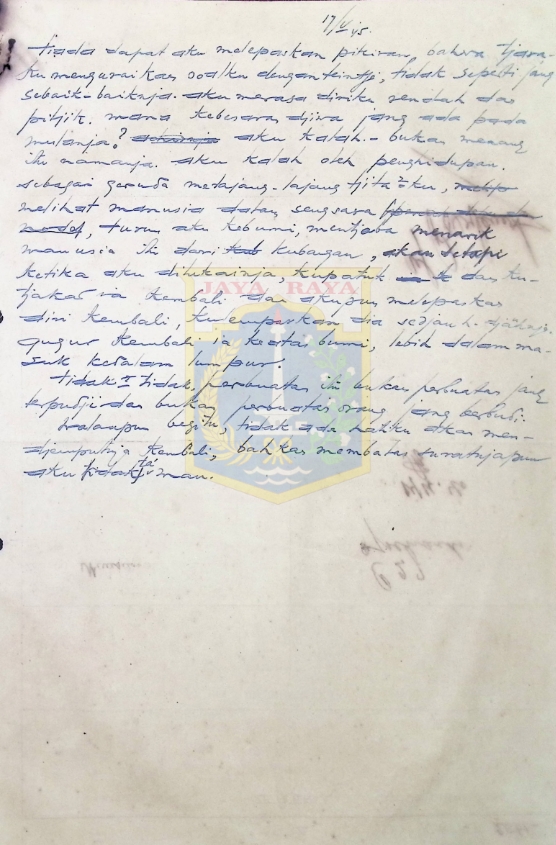 17/V 45.
tiada dapat aku melepaskan pikiran, bahwa tjara-
ku menguraikan soalku dengan teintji, tidak seperti jang
sebaik-baiknja. aku merasa diriku rendah dan
pitjik. mana kebesaran djiwa jang ada pada
mulanja? achirnja aku kalah.- bukan menang
itu namanja. aku kalah oleh penghidupan.
sebagai geruda melajang-lajang tjita2ku,
melihat manusia dalam sengsara
turun aku kebumi, mentjoba menarik
manusia itu dari kubangan, akan tetapi
ketika aku dilukainja kupatuk ia dan ku-
tjakar ia kembali dan akupun melepaskan
diri kembali, kulemparkan dia sedjauh-djauhnja.
gugur kembali ia keatas bumi, lebih dalam ma-
suk kedalam lumpur.
tidak2 tidak, perbuatan itu bukan perbuatan jang
terpudji dan bukan perbuatan orang jang berbudi.
walaupun begitu, tidak ada hatiku akan men-
djemputnja kembali, bahkan membalas suratnjapun
aku tidak mau.
JAYA RAYA